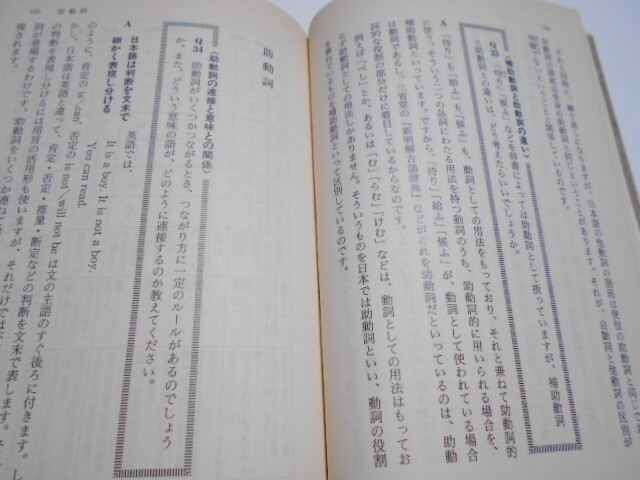 それと同様に、
になりますが、日本語の他動詞の語尾は使役の助動詞と同じ
自動詞の語尾は受身の助動詞と同じということがあります。それが、自動詞と他動詞の区別が
しているのです。
〈補助動詞と助動詞の違い〉
Q33 「侍り」も「候ふ」などを辞書によっては助動詞として扱っていますが、補助動詞
と助動詞との違いは、どう考えたらいいでしょうか。
A 「侍り」も「給ふ」も「候ふ」も、動詞としての用法をもっており、それと兼ねて助動詞的
に使う。そういう二つの品詞にわたる用法を持つ動詞のうち、助動詞的に用いられる場合を、
補助動詞といっています。ですから、「侍り」「給ふ」「候ふ」が、動詞として使われている場合
は動詞であるし、三省堂の『新明解古語辞典』などがこれを助動詞だといっているのは、助動
詞的な役割の部分だけに着目しているからなのです。
例えば「べし」とか、あるいは「む」「らむ」「けむ」などは、動詞としての用法はもってお
らず助動詞としての用法しかありません。そういうものを日本では助動詞といい、動詞の役割
を兼ねているものを補助動詞といって区別しているのです。
助動詞
〈助動詞の連接と意味との関係〉
Q34 助動詞がいくつかつながるとき、つながり方に一定のルールがあるのでしょう
か。また、どういう意味の語が、どのように連接するのか教えてください。
A 日本語は判断を文末で
細かく表現し分ける
英語では、
It is a boy. It is not a boy.
You can read.
のように、肯定の is／can、否定の is not、will not be は文の主語のすぐ後ろに付きます。し
かし、日本語は英語と違って、肯定・否定・推量・断定などの判断を文末で表します。そ
の判断を表現し分けるには用言の活用形も使いますが、それだけでは
詞が登場するわけです。助動詞をいくつか連ねて
現されます。
125 助動詞